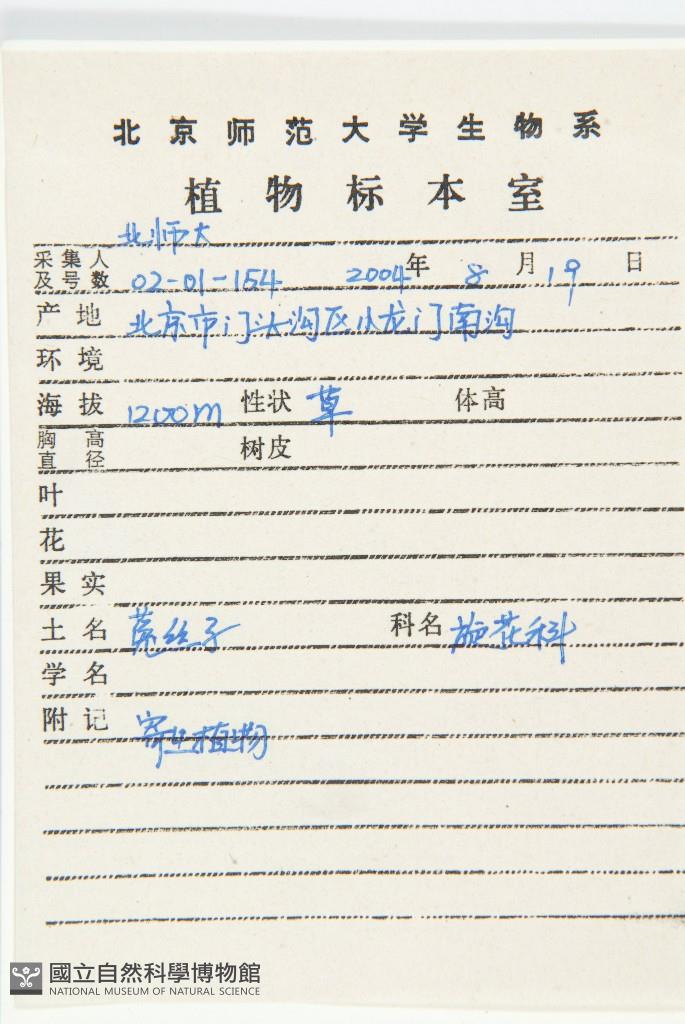 北京师范大学生物系
植物标本室
北师大
采集人及号数 02-01-154 2004年 8月 19日
产地 北京市门头沟区小龙门南沟
环境
海拔 1200m 性状 草 体高
胸高直径 树皮
叶
花
果实
土名 菟丝子 科名 旋花科
学名
附记 寄生植物
國立自然科學博物館
NATIONAL MUSEUM OF NATURAL SCIENCE